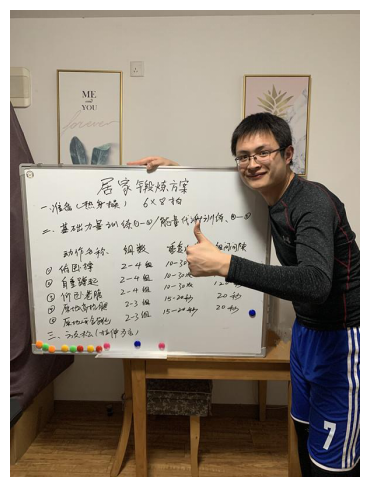 ME
and
YOU
forever
居家锻炼方案
一.准备(热身操) 6×8拍
二.基础力量训练①-③/脂昔代谢训练④-⑤
动作名称 组数 重复 组间间隙
① 俯卧撑 2-4组 10-30次
② 自重蹲起 2-4组 10-30次
③ 仰卧卷腹 2-4组 10-30次
④ 原地高抬腿 2-3组 15-20秒 20秒
⑤ 2-3组 15-20秒 20秒
三.
7